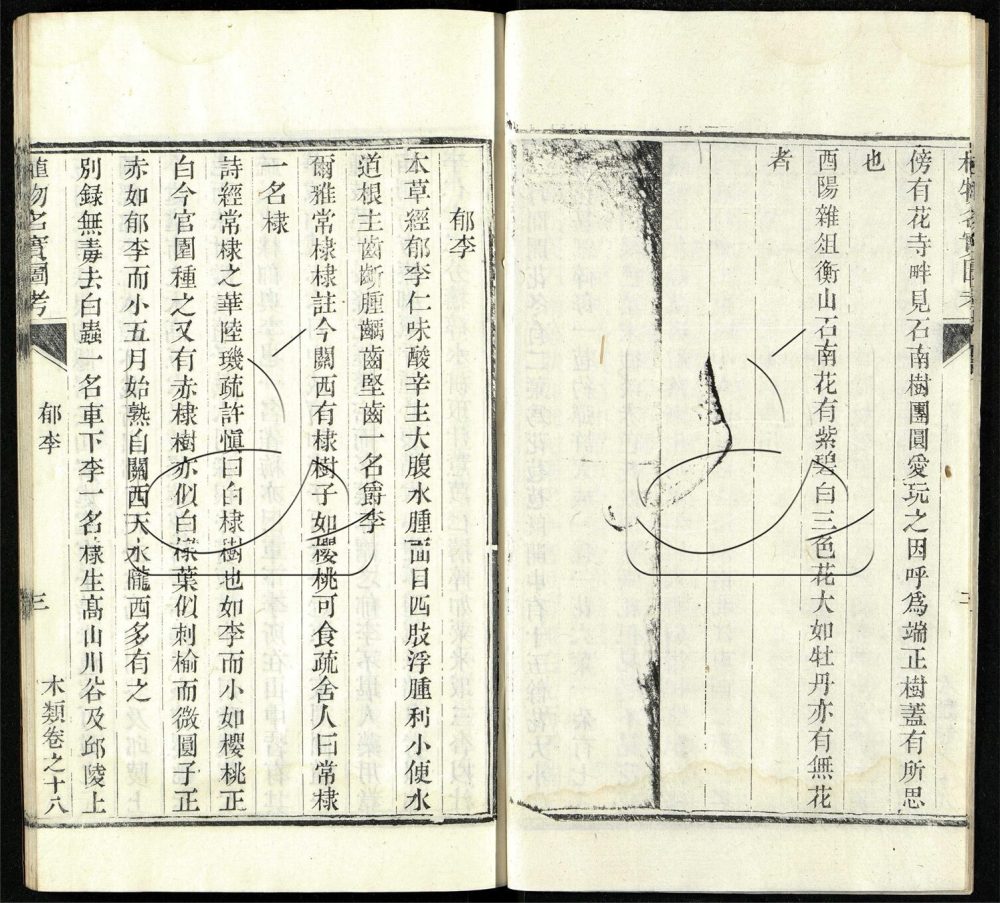 植物名實圖考
傍有花寺畔見石南樹團圓愛玩之因呼爲端正樹蓋有所思
也
酉陽雜俎衡山石南花有紫碧白三色花大如牡丹亦有無花
者
郁李
本草經郁李仁味酸辛主大腹水腫面目四肢浮腫利小便水
道根主齒齗腫齲齒堅齒一名爵李
爾雅常棣棣註今關西有棣樹子如櫻桃可食疏舍人曰常棣
一名棣
詩經常棣之華陸璣疏許愼曰白棣樹也如李而小如櫻桃正
白今官園種之又有赤棣樹亦似白棣葉似刺榆而微圓子正
赤如郁李而小五月始熟自關西天水隴西多有之
別録無毒去白蟲一名車下李一名棣生髙山川谷及邱陵上
植物名實圖考
郁李
三
木類卷之十八